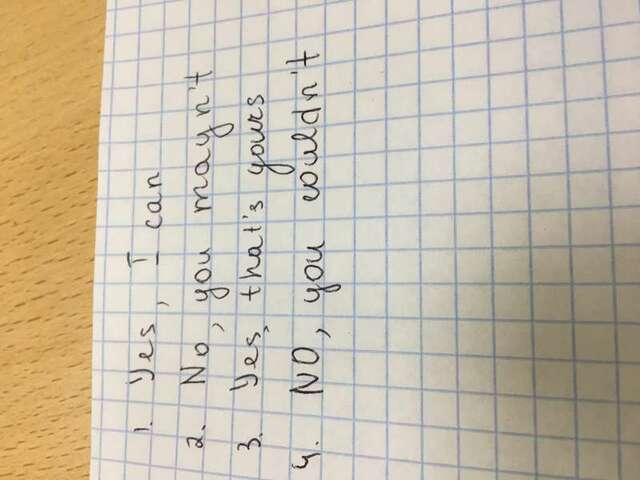 1. Yes, I can
2. No, you mayn't
3. Yes, that's yours
4. NO, you couldn't